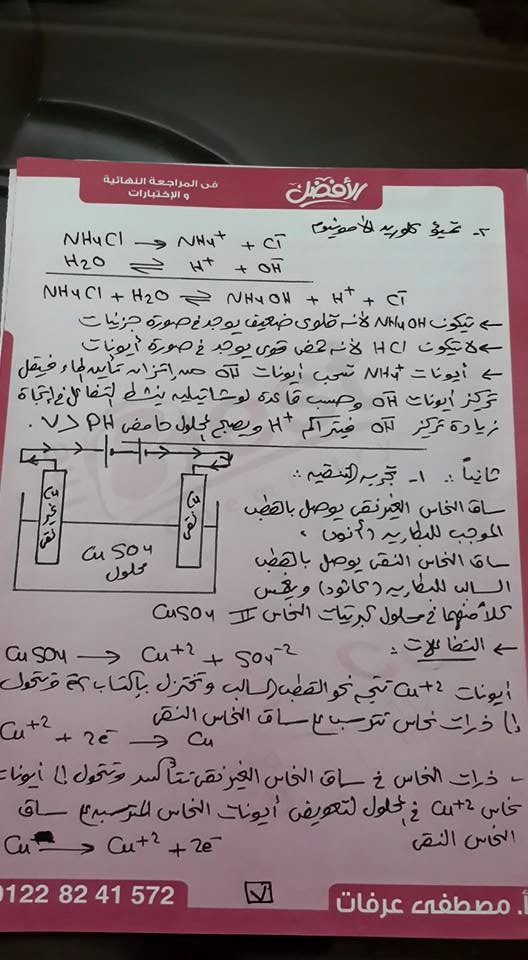 الأفضل
فى المراجعة النهائية
و الإختبارات
٢- تميؤ كلوريد الأمونيوم
NH4Cl → NH4+ + Cl-
H2O ⇌ H+ + OH-
NH4Cl + H2O ⇌ NH4OH + H+ + Cl-
← تتكون NH4OH لأنه قلوى ضعيف يوجد فى صورة جزيئات
← لا تتكون HCl لأنه حمض قوى يوجد فى صورة أيونات
← أيونات NH4+ تسحب أيونات OH- من إتزان تأين الماء فيقل
تركيز أيونات OH- وحسب قاعدة لوشاتيليه ينشط التفاعل فى إتجاة
زيادة تركيز OH- فيتراكم H+ ويصبح المحلول حامض PH < 7.
ثانياً: ١- تجربة التنقية:
ساق النحاس الغير نقى يوصل بالقطب
الموجب للبطارية (أنود)،
ساق النحاس النقى يوصل بالقطب
السالب للبطارية (كاثود) ويغمس
كلاً منهما فى محلول كبريتات النحاس II CuSO4
Cu غير نقى
Cu نقى
CuSO4
محلول
← التفاعلات:
CuSO4 → Cu+2 + SO4-2
أيونات Cu+2 تتجه نحو القطب السالب وتختزل بإكتساب 2e وتتحول
إلى ذرات نحاس تترسب على ساق النحاس النقى
Cu+2 + 2e- → Cu
- ذرات النحاس فى ساق النحاس الغير نقى تتأكسد وتتحول إلى أيونات
نحاس Cu+2 فى المحلول لتعويض أيونات النحاس المترسبة على ساق
النحاس النقى
Cu → Cu+2 + 2e-
0122 82 41 572
٧
أ. مصطفى عرفات